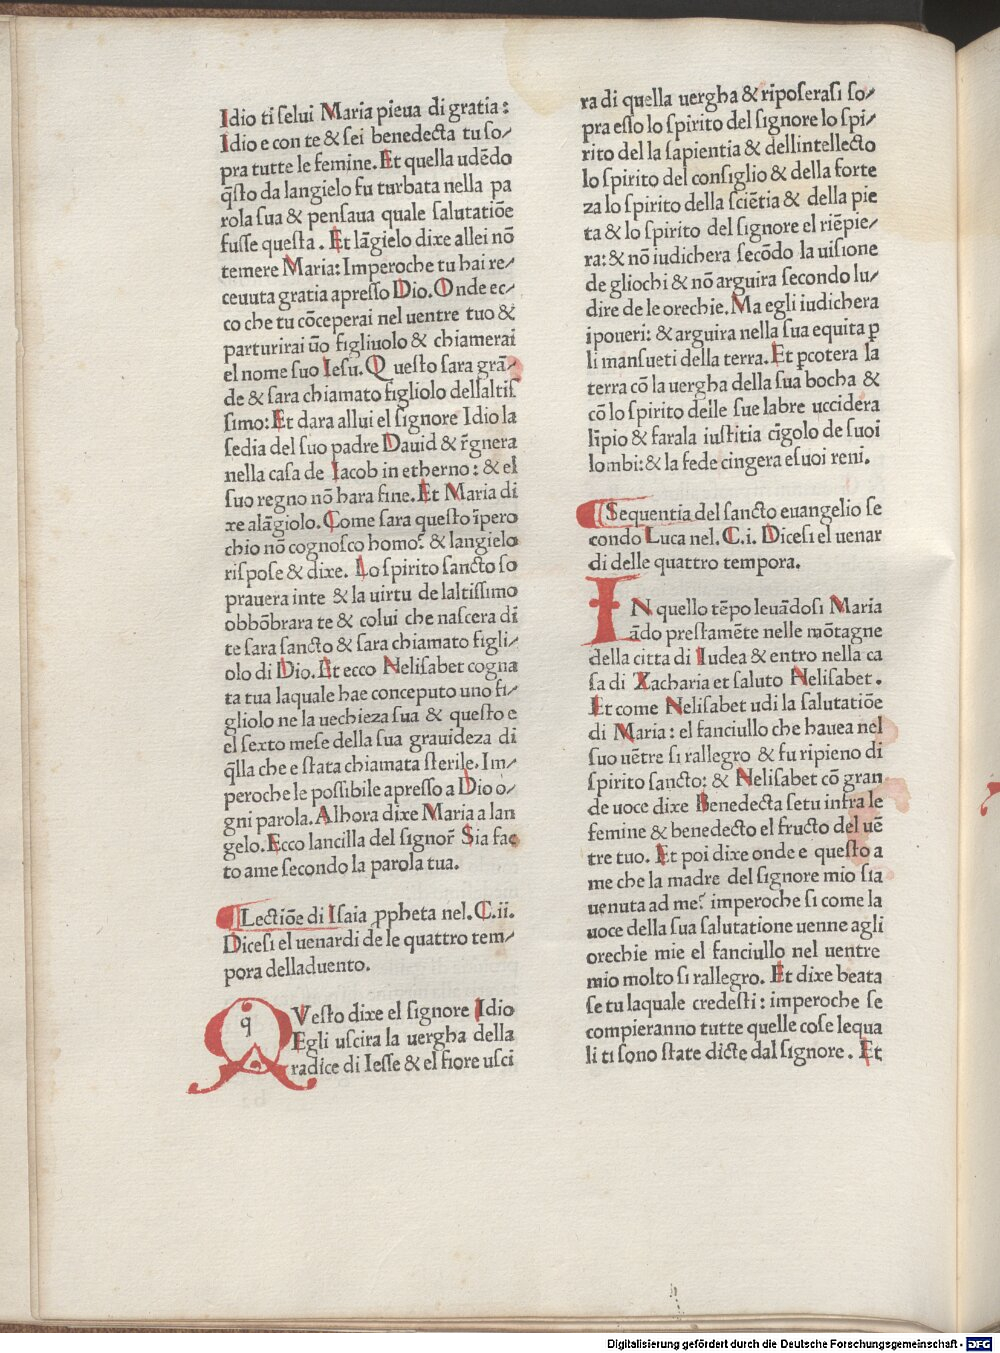 Idio ti ſelui Maria pieua di gratia:
Idio e con te & ſei benedecta tu ſo⸗
pra tutte le femine. Et quella udēdo
q̄ſto da langielo fu turbata nella pa
rola ſua & penſaua quale ſalutatiōe
fuſſe queſta. Et lāgielo dixe allei nō
temere Maria: Imperoche tu hai re⸗
ceuuta gratia apreſſo Dio. Onde ec⸗
co che tu cōceperai nel uentre tuo &
parturirai ūo figliuolo & chiamerai
el nome ſuo Ieſu. Queſto ſara grā⸗
de & ſara chiamato figliolo dellaltiſ
ſimo: Et dara allui el ſignore Idio la
ſedia del ſuo padre Dauid & r̄gnera
nella caſa de Iacob in etherno: & el
ſuo regno nō hara fine. Et Maria di
xe alāgiolo. Come ſara queſto īpero
chio nō cognoſco homo? & langielo
riſpoſe & dixe. Lo ſpirito ſancto ſo
prauera inte & la uirtu de laltiſſimo
obbōbrara te & colui che naſcera di
te ſara ſancto & ſara chiamato figli⸗
olo di Dio. Et ecco Neliſabet cogna
ta tua laquale hae conceputo uno fi⸗
gliolo ne la uechieza ſua & queſto e
el ſexto meſe della ſua grauideza di
q̄lla che e ſtata chiamata ſterile. Im⸗
peroche le poſſibile apreſſo a Dio o⸗
gni parola. Alhora dixe Maria a lan
gelo. Ecco lancilla del ſignor̄ Sia fac
to ame ſecondo la parola tua.
Lectiōe di Iſaia ꝓpheta nel. C. ii.
Diceſi el uenardi de le quattro tem⸗
pora delladuento.
q
Veſto dixe el ſignore Idio
Egli uſcira la uergha della
radice di Ieſſe & el fiore uſci
ra di quella uergha & ripoſeraſi ſo⸗
pra eſſo lo ſpirito del ſignore lo ſpi⸗
rito del la ſapientia & dellintellecto
lo ſpirito del conſiglio & della forte
za lo ſpirito della ſciētia & della pie
ta & lo ſpirito del ſignore el riēpie⸗
ra: & nō iudichera ſecōdo la uiſione
de gliochi & nō arguira ſecondo lu⸗
dire de le orechie. Ma egli iudichera
i poueri: & arguira nella ſua equita ꝑ
li manſueti della terra. Et ꝑcotera la
terra cō la uergha della ſua bocha &
cō lo ſpirito delle ſue labre uccidera
līpio & farala iuſtitia cīgolo de ſuoi
lombi: & la fede cingera eſuoi reni.
Sequentia del ſancto euangelio ſe
condo Luca nel. C. i. Diceſi el uenar
di delle quattro tempora.
IN quello tēpo leuādoſi Maria
ādo preſtamēte nelle mōtagne
della citta di Iudea & entro nella ca
ſa di Zacharia et ſaluto Neliſabet.
Et come Neliſabet udi la ſalutatiōe
di Maria: el fanciullo che hauea nel
ſuo uētre ſi rallegro & fu ripieno di
ſpirito ſancto: & Neliſabet cō gran
de uoce dixe Benedecta ſetu infra le
femine & benedecto el fructo del uē
tre tuo. Et poi dixe onde e queſto a
me che la madre del ſignore mio ſia
uenuta ad me? imperoche ſi come la
uoce della ſua ſalutatione uenne agli
orechie mie el fanciullo nel uentre
mio molto ſi rallegro. Et dixe beata
ſe tu laquale credeſti: imperoche ſe
compieranno tutte quelle coſe lequa
li ti ſono ſtate dicte dal ſignore. Et
Digitalisierung gefördert durch die Deutsche Forschungsgemeinschaft - DFG